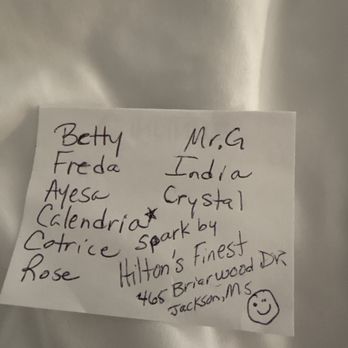 Betty
Freda
Ayesa
Calendria*
Cotrice
Rose
Mr. G
India
Crystal
spark by
Hilton's Finest
465 Briarwood Dr.
Jackson, Ms